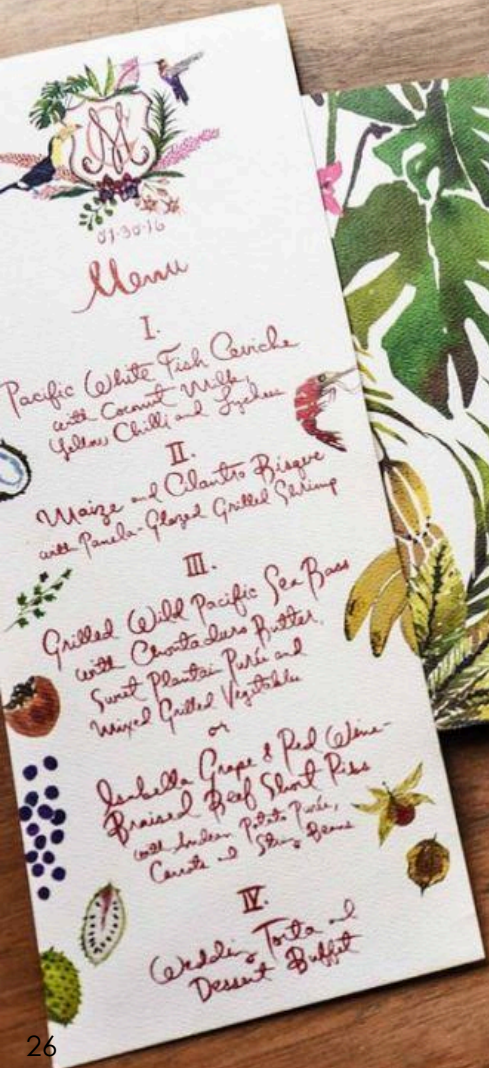 01·30·16
Menu
I.
Pacific White Fish Ceviche
with Coconut Milk,
Yellow Chilli and Lychees
II.
Maize and Cilantro Bisque
with Panela-Glazed Grilled Shrimp
III.
Grilled Wild Pacific Sea Bass
with Chontaduro Butter,
Sweet Plantain Purée and
Mixed Grilled Vegetables
or
Isabella Grape & Red Wine-
Braised Beef Short Ribs
with Andean Potato Purée,
Carrots and String Beans
IV.
Wedding Torta and
Dessert Buffet
26